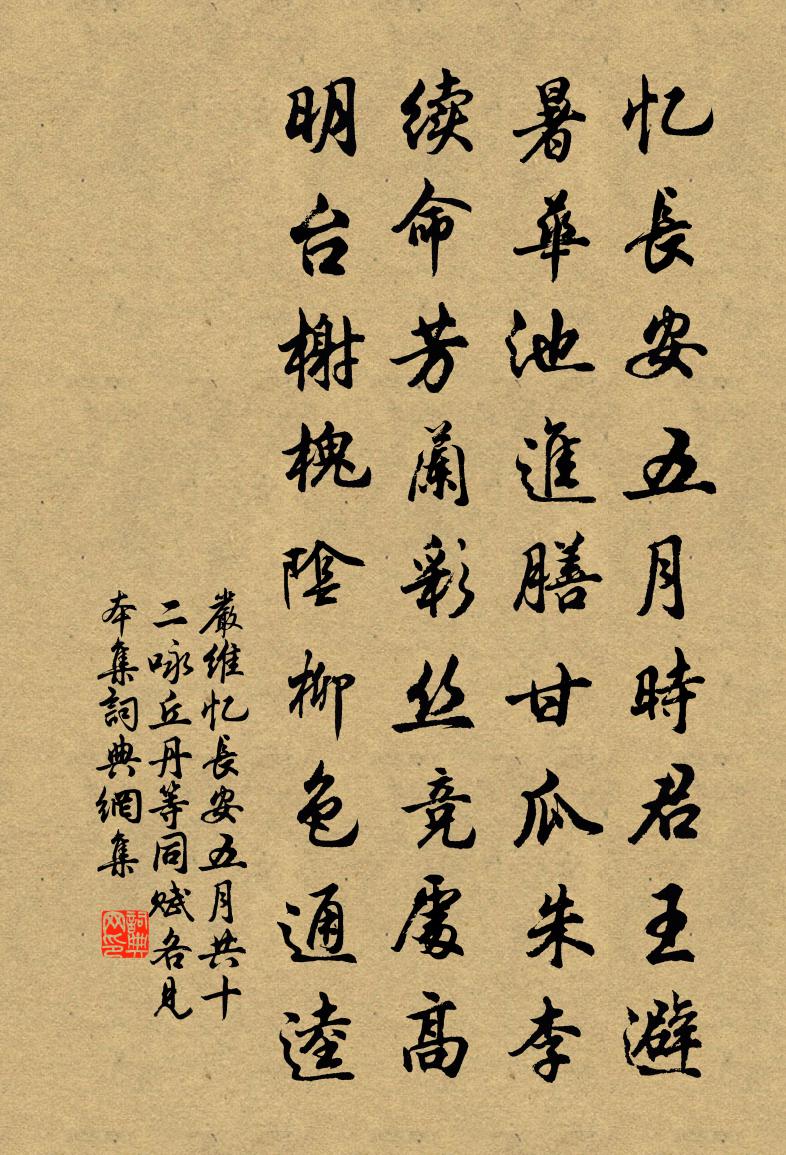 忆長安五月時君王避
暑華池進膳甘瓜朱李
续命芳蘭彩丝竞處高
明台榭槐陰柳色通逵
嚴維忆長安五月共十
二咏丘丹等同赋各見
本集詞典網集
詞典网印